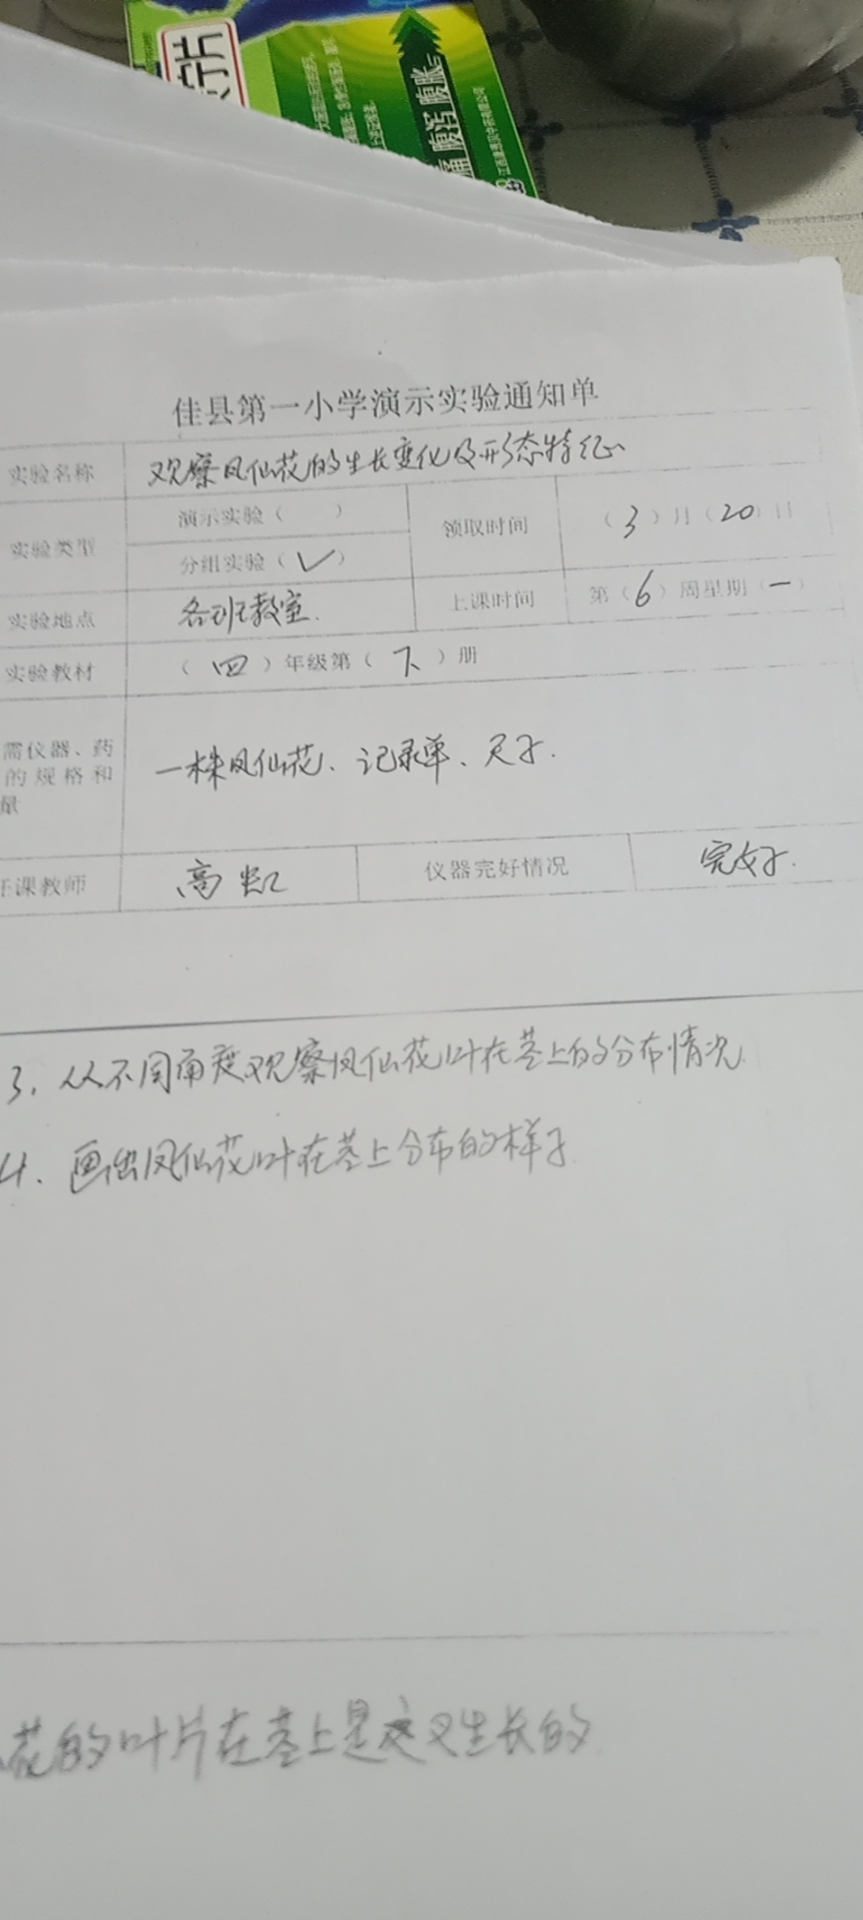 片
痛 腹泻 腹胀
江西康恩贝中药有限公司
佳县第一小学演示实验通知单
实验名称 观察凤仙花的生长变化及形态特征
实验类型 演示实验（ ） 领取时间 （3）月（20）日
分组实验（✓）
实验地点 各班教室. 上课时间 第（6）周星期（一）
实验教材 （四）年级第（下）册
需仪器、药
的规格和 一株凤仙花、记录单、尺子.
量
任课教师 高 仪器完好情况 完好.
3、从不同角度观察凤仙花叶在茎上的分布情况.
4、画出凤仙花叶在茎上分布的样子
花的叶片在茎上是交叉生长的